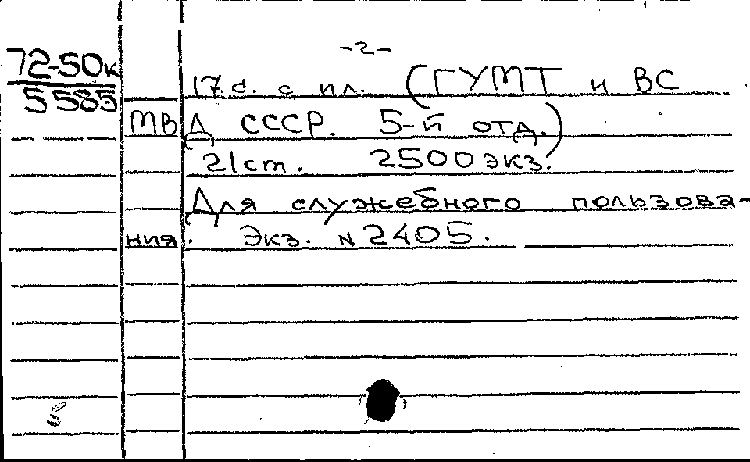 -2-
72-50к
5585
17 с. с ил. (ГУМТ и ВС
МВД СССР. 5-й отд.)
21 см. 2500 экз.
Для служебного пользова-
ния. Экз. № 2405.